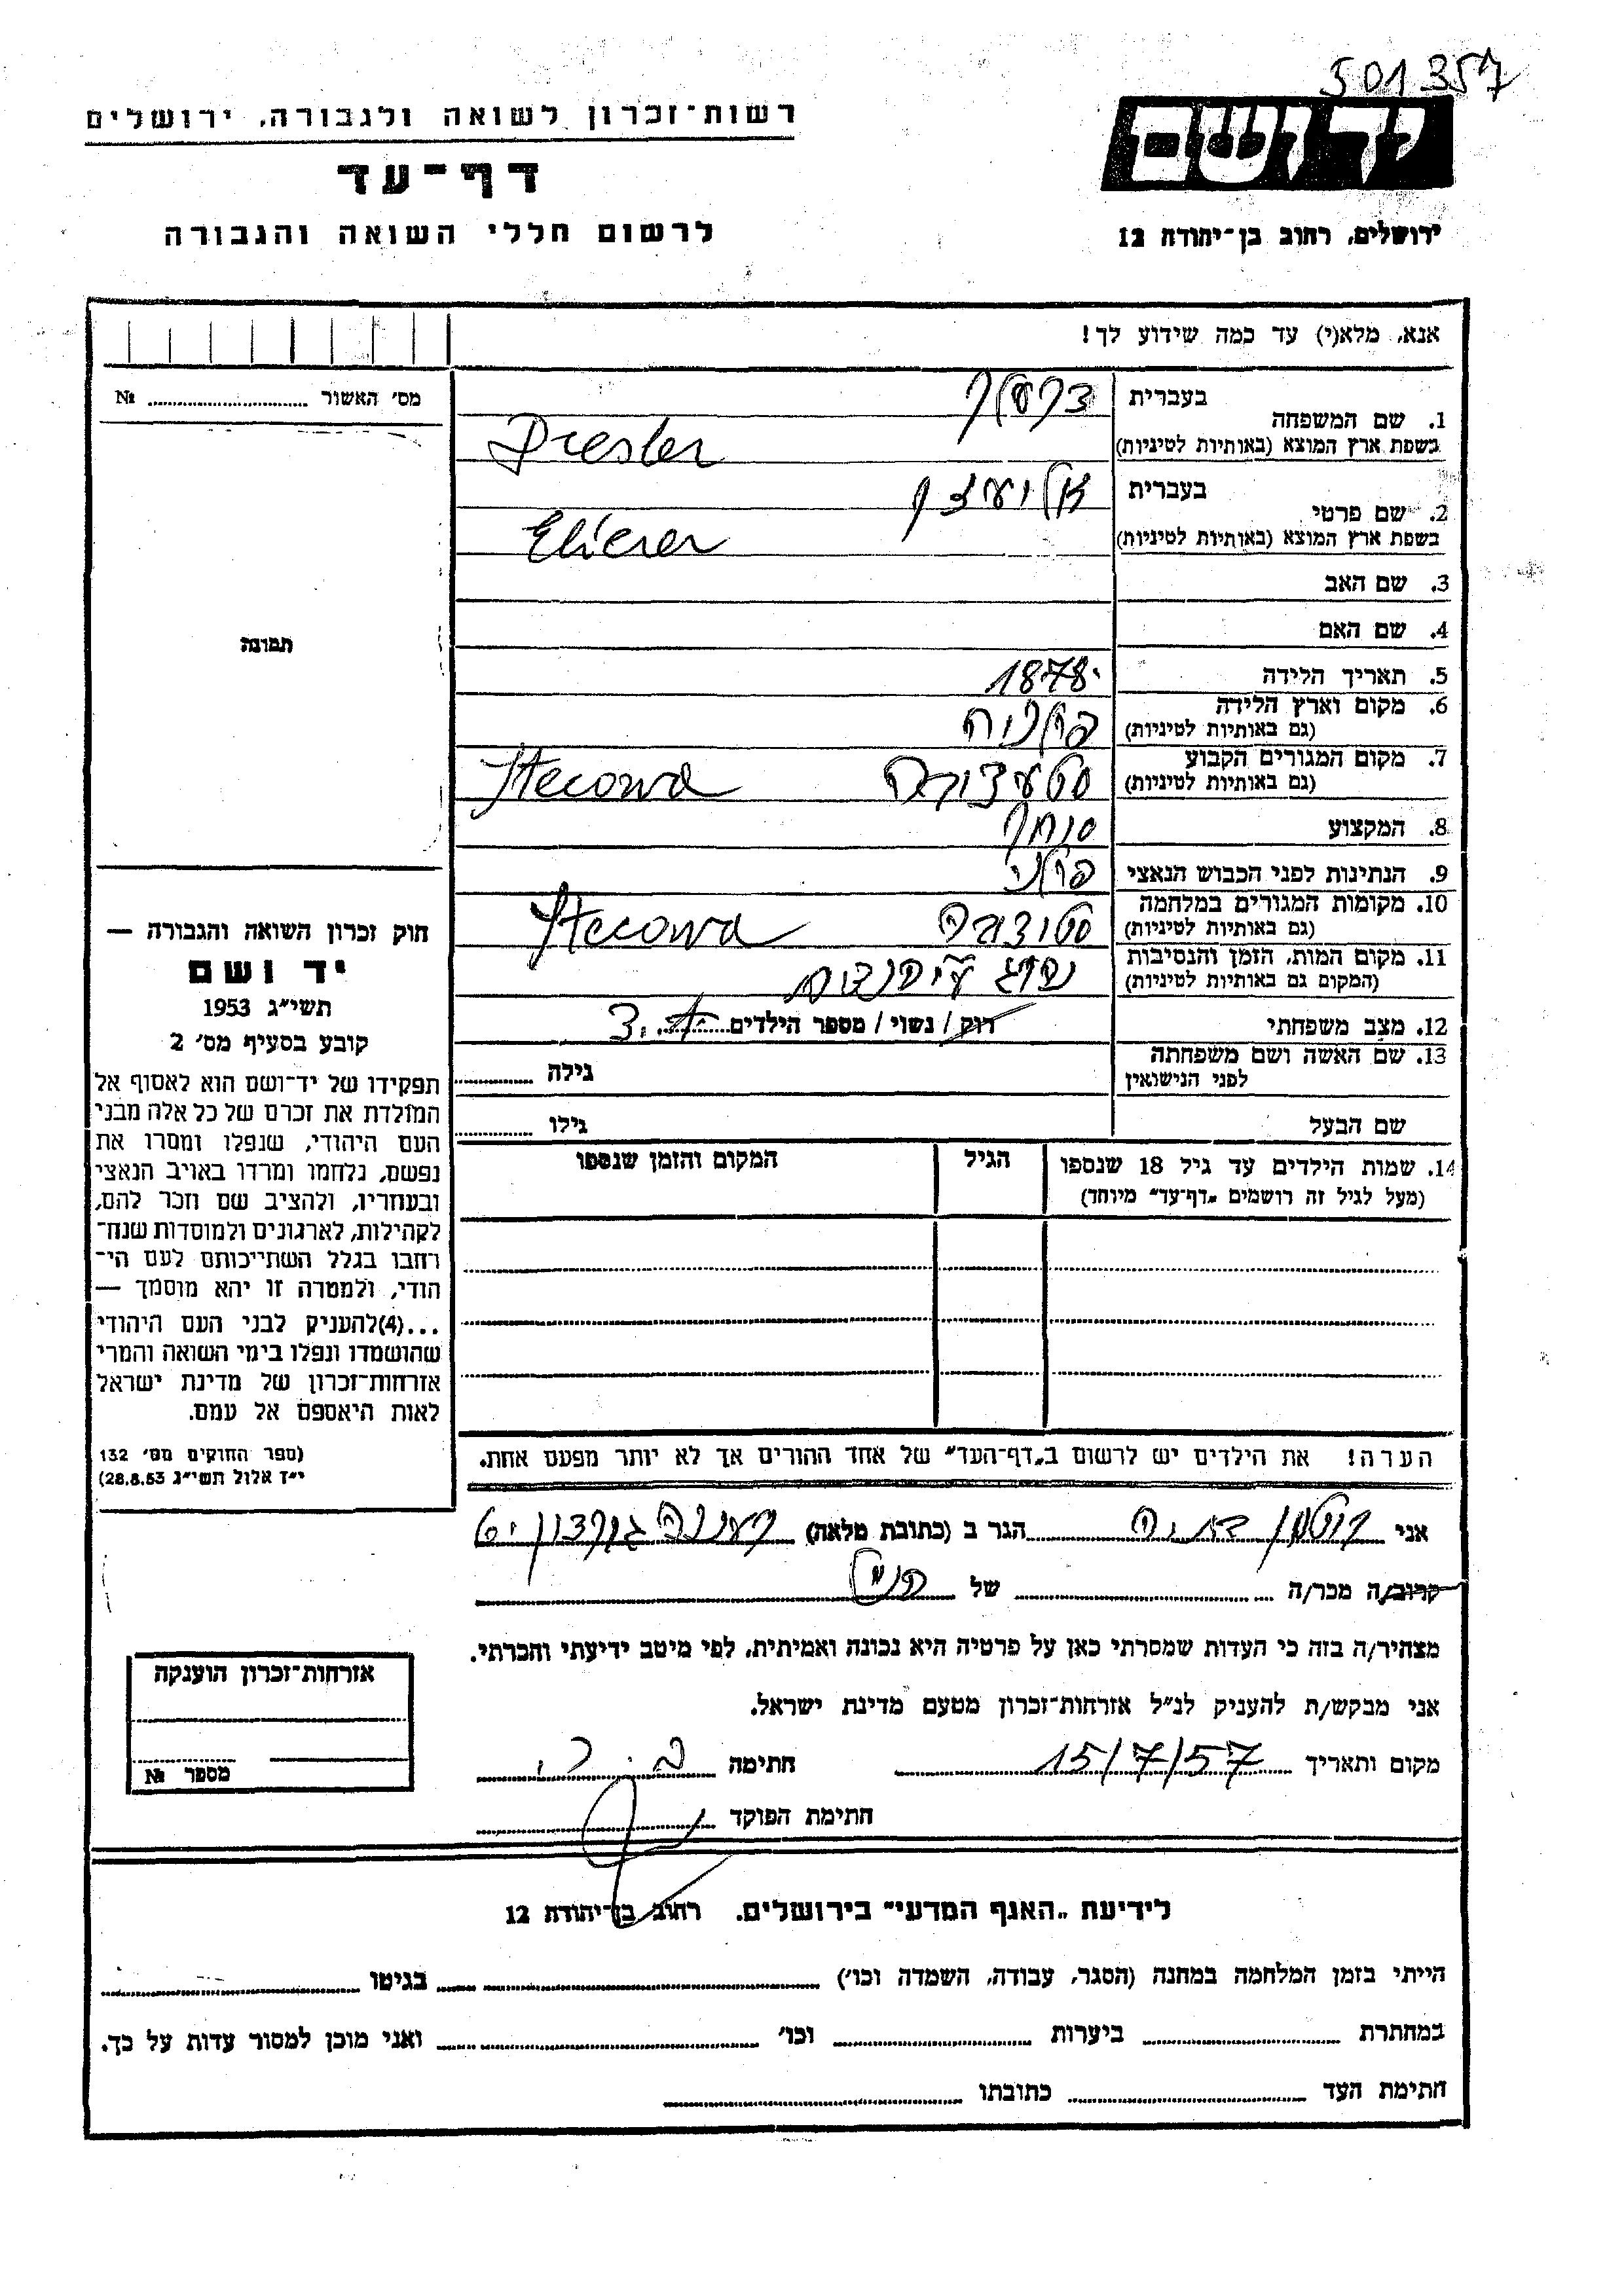 501357
ידושם
רשות־זכרון לשואה ולגבורה, ירושלים
דף־עד
לרשום חללי השואה והגבורה
ירושלים, רחוב בן־יהודה 12
אנא, מלא(י) עד כמה שידוע לך!
מס׳ האשור № ........
תמונה
1. שם המשפחה
בעברית
בשפת ארץ המוצא (באותיות לטיניות)
Dresler
2. שם פרטי
בעברית
בשפת ארץ המוצא (באותיות לטיניות)
Eliezer
3. שם האב
4. שם האם
5. תאריך הלידה 1878
6. מקום וארץ הלידה
(גם באותיות לטיניות)
פולניה
7. מקום המגורים הקבוע
(גם באותיות לטיניות)
8. המקצוע סוחר
9. הנתינות לפני הכבוש הנאצי פולני
10. מקומות המגורים במלחמה
(גם באותיות לטיניות)
11. מקום המות, הזמן והנסיבות
(המקום גם באותיות לטיניות)
12. מצב משפחתי רוק / נשוי / מספר הילדים
13. שם האשה ושם משפחתה
לפני הנישואין
גילה ........
שם הבעל גילו ........
14. שמות הילדים עד גיל 18 שנספו
(מעל לגיל זה רושמים „דף־עד״ מיוחד)
הגיל
המקום והזמן שנספו
הערה! את הילדים יש לרשום ב„דף־העד״ של אחד ההורים אך לא יותר מפעם אחת.
חוק זכרון השואה והגבורה —
יד ושם
תשי״ג 1953
קובע בסעיף מס׳ 2
תפקידו של יד־ושם הוא לאסוף אל
המולדת את זכרם של כל אלה מבני
העם היהודי, שנפלו ומסרו את
נפשם, נלחמו ומרדו באויב הנאצי
ובעוזריו, ולהציב שם וזכר להם,
לקהילות, לארגונים ולמוסדות שנח־
רחבו בגלל השתייכותם לעם הי־
הודי, ולמטרה זו יהא מוסמך —
...(4)להעניק לבני העם היהודי
שהושמדו ונפלו בימי השואה והמרי
אזרחות־זכרון של מדינת ישראל
לאות היאספם אל עמם.
(ספר החוקים מס׳ 132
י״ד אלול תשי״ג 28.8.53)
אני ........ הגר ב (כתובת מלאה) ........
קרוב/ה מכר/ה ........ של ........
מצהיר/ה בזה כי העדות שמסרתי כאן על פרטיה היא נכונה ואמיתית, לפי מיטב ידיעתי והכרתי.
אני מבקש/ת להעניק לנ״ל אזרחות־זכרון מטעם מדינת ישראל.
מקום ותאריך 15/7/57 חתימה
חתימת הפוקד
אזרחות־זכרון הוענקה
מספר №
לידיעת „האגף המדעי״ בירושלים. רחוב בן־יהודה 12
הייתי בזמן המלחמה במחנה (הסגר, עבודה, השמדה וכו׳) ........ בגיטו ........
במחתרת ........ ביערות ........ וכו׳ ........ ואני מוכן למסור עדות על כך.
חתימת העד ........ כתובתו ........